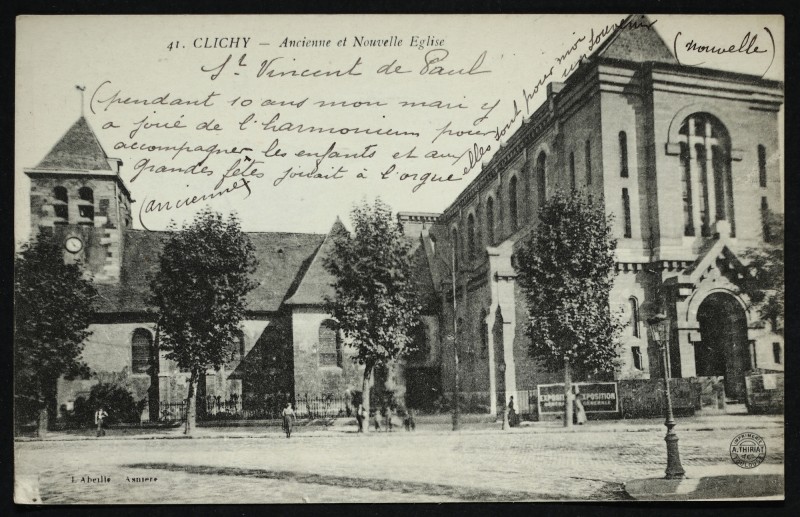 41. CLICHY — Ancienne et Nouvelle Eglise
St Vincent de Paul
(nouvelle)
(pendant 10 ans mon mari y
a joué de l'harmonium pour
accompagner les enfants et aux
grandes fêtes jouait à l'orgue
elles sont pour moi
un souvenir
(ancienne)
EXPOSITION
GÉNÉRALE
L'Abeille Asniere
IMPRIMERIE
A. THIRIAT
& Cie
TOULOUSE